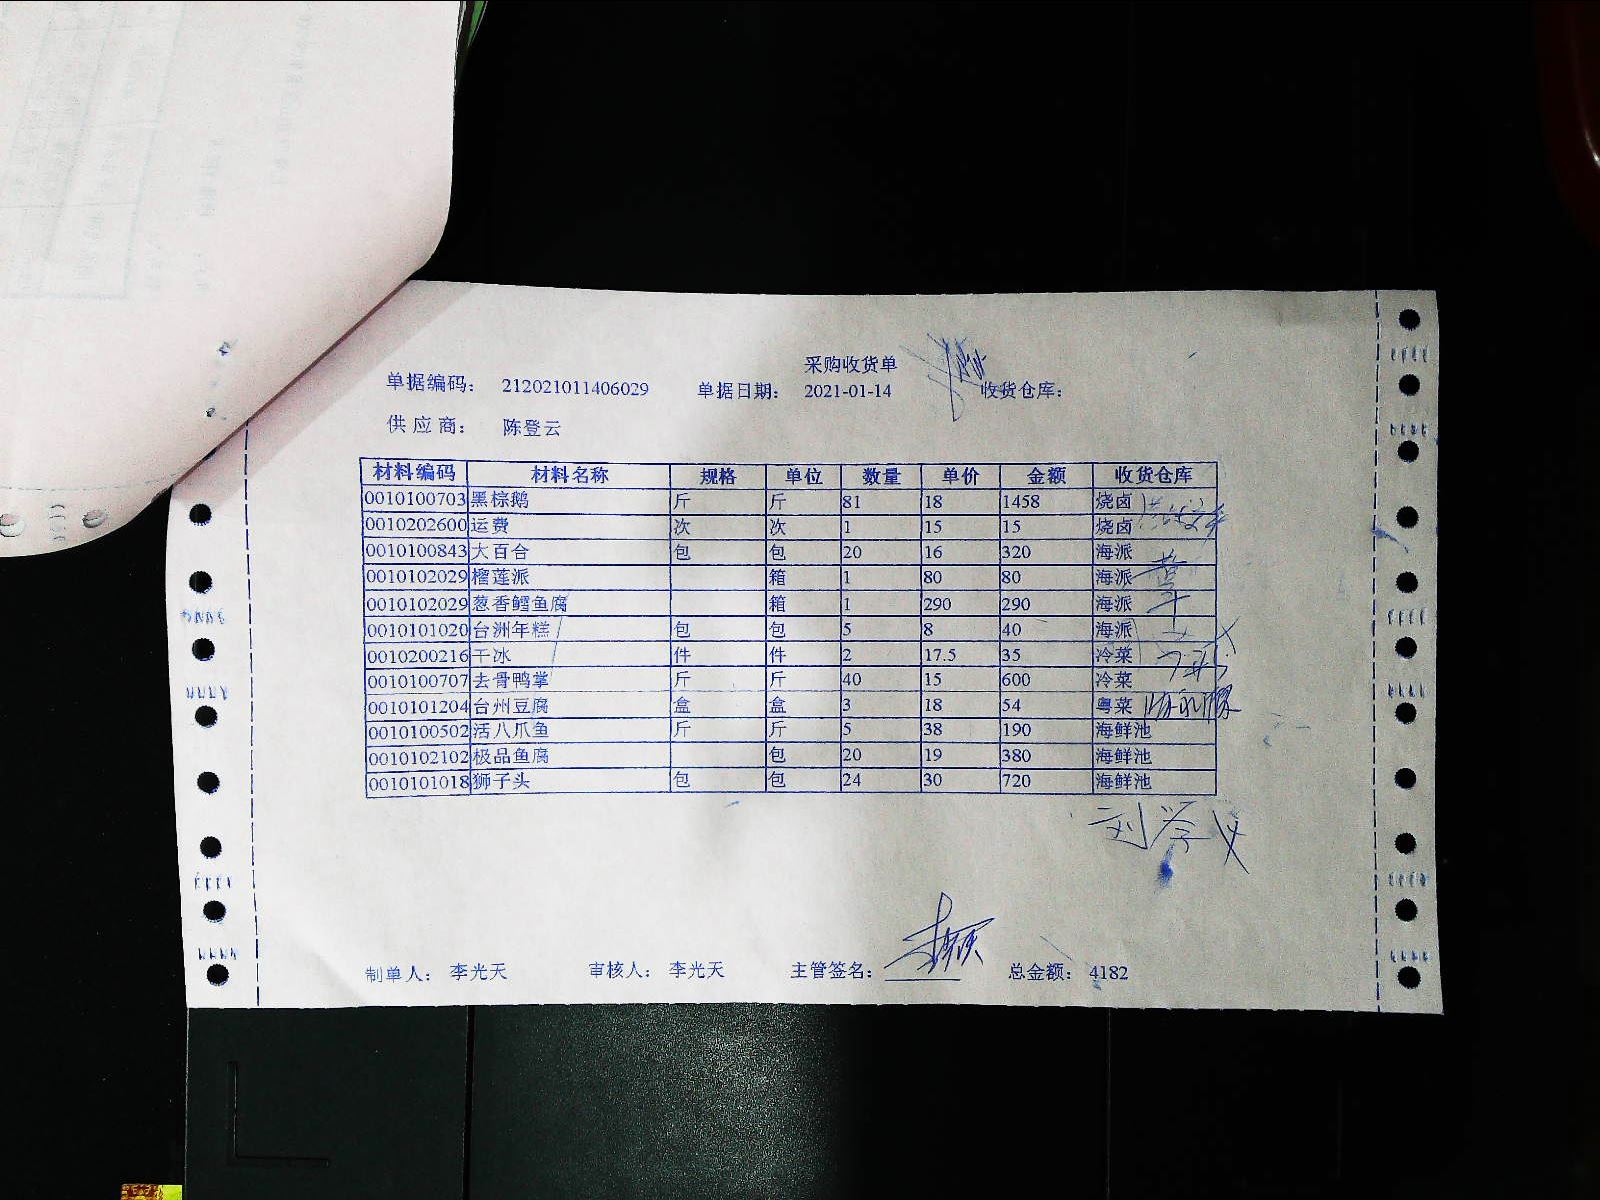 采购收货单
单据编码: 212021011406029 单据日期: 2021-01-14 收货仓库:
供应商: 陈登云
材料编码 材料名称 规格 单位 数量 单价 金额 收货仓库
0010100703 黑棕鹅 斤 斤 81 18 1458 烧卤
0010202600 运费 次 次 1 15 15 烧卤
0010100843 大百合 包 包 20 16 320 海派
0010102029 榴莲派 箱 1 80 80 海派
0010102029 葱香鳕鱼腐 箱 1 290 290 海派
0010101020 台洲年糕 包 包 5 8 40 海派
0010200216 干冰 件 件 2 17.5 35 冷菜
0010100707 去骨鸭掌 斤 斤 40 15 600 冷菜
0010101204 台州豆腐 盒 盒 3 18 54 粤菜
0010100502 活八爪鱼 斤 斤 5 38 190 海鲜池
0010102102 极品鱼腐 包 20 19 380 海鲜池
0010101018 狮子头 包 包 24 30 720 海鲜池
制单人: 李光天 审核人: 李光天 主管签名: 总金额: 4182